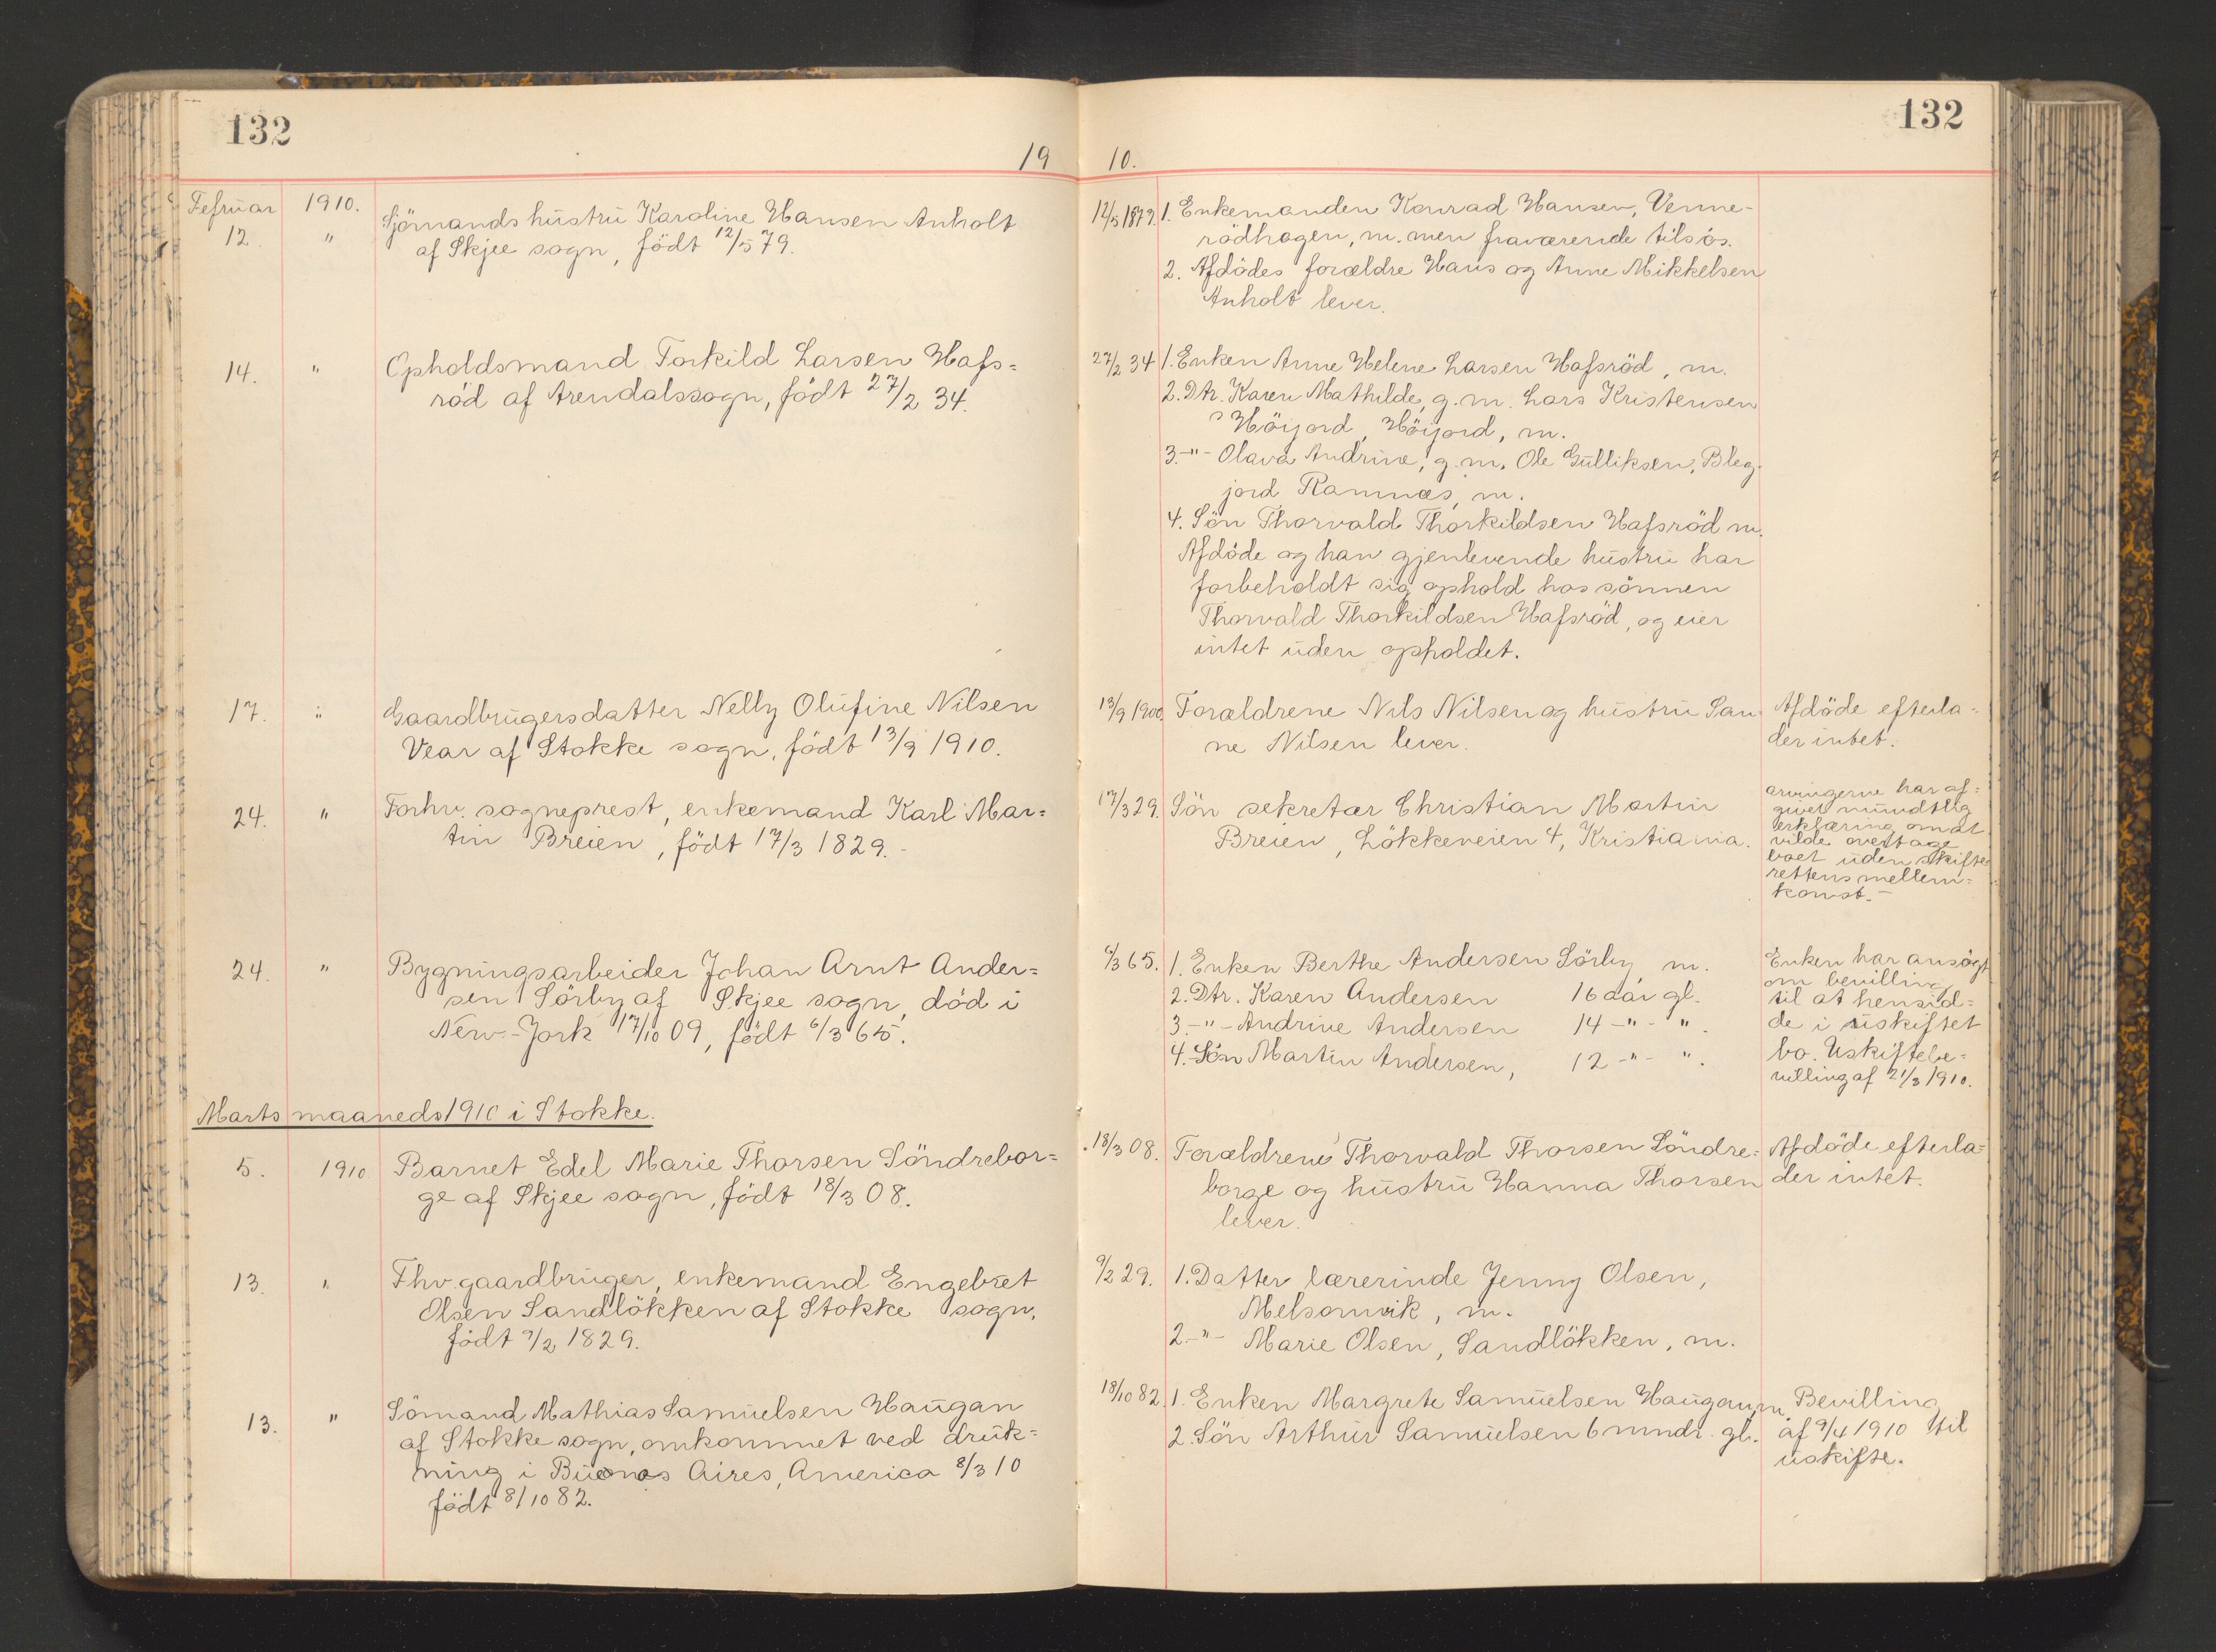 132
132
19 10.
Februar 1910.
12. " Sjömands hustru Karoline Hansen Anholt
af Skjee sogn, födt 12/5 79.
12/5 1879. 1. Enkemanden Konrad Hansen, Venne-
rödhagen, m. men fraværende tilsös.
2. Afdödes forældre Hans og Anne Mikkelsen
Anholt lever.
14. " Opholdsmand Torkild Larsen Hafs=
röd af Arendalssogn, födt 27/2 34.
27/2 34 1. Enken Anne Helene Larsen Hafsröd, m.
2. Dtr. Karen Mathilde, g. m. Lars Kristensen
Höijord, Höijord, m.
3. -"- Olava Andrine, g. m. Ole Gulliksen, Bleg-
jord Ramnæs, m.
4. Sön Thorvald Thorkildsen Hafsröd m.
Afdöde og han gjenlevende hustru har
forbeholdt sig ophold hos sönnen
Thorvald Thorkildsen Hafsröd, og eier
intet uden opholdet.
17. " Gaardbrugersdatter Nelly Olufine Nilsen
Vear af Stokke sogn, födt 13/9 1910.
13/9 1900. Forældrene Nils Nilsen og hustru San-
ne Nilsen lever.
Afdöde efterla=
der intet.
24. " Forhv. sogneprest, enkemand Karl Mar=
tin Breien, födt 17/3 1829.-
17/3 29. Sön sekretær Christian Martin
Breien, Lökkeveien 4, Kristiania.
arvingerne har af=
givet mundtlig
erklæring om at
vilde overtage
boet uden skifte
rettens mellem=
komst.-
24. " Bygningsarbeider Johan Arnt Ander=
sen Sörby af Skjee sogn, död i
New-Jork 17/10 09, födt 6/3 65.
6/3 65. 1. Enken Berthe Andersen Sörby, m.
2. Dtr. Karen Andersen 16 aar gl.
3. -"- Andrine Andersen 14 -"- ".
4. Sön Martin Andersen, 12 -"- ".
Enken har ansögt
om bevilling
til at hensid=
de i uskiftet
bo. Uskiftebe=
villing af 21/3 1910.
Marts maaneds 1910 i Stokke.
5. 1910 Barnet Edel Marie Thorsen Söndrebor=
ge af Skjee sogn, födt 18/3 08.
18/3 08. Forældrene Thorvald Thorsen Söndre=
borge og hustru Hanna Thorsen
lever.
Afdöde efterla=
der intet.
13. " Fhv gaardbruger, enkemand Engebret
Olsen Sandlökken af Stokke sogn,
födt 9/2 1829.
9/2 29. 1. Datter lærerinde Jenny Olsen,
Melsomvik, m.
2 -"- Marie Olsen, Sandlökken, m.
13. " Sömand Mathias Samuelsen Haugan
af Stokke sogn, omkommet ved druk=
ning i Buenos Aires, America 8/3 10
födt 8/10 82.
18/10 82. 1. Enken Margrete Samuelsen Haugan, m.
2. Sön Arthur Samuelsen 6 mndr. gl.
Bevilling
af 9/4 1910 til
uskifte.